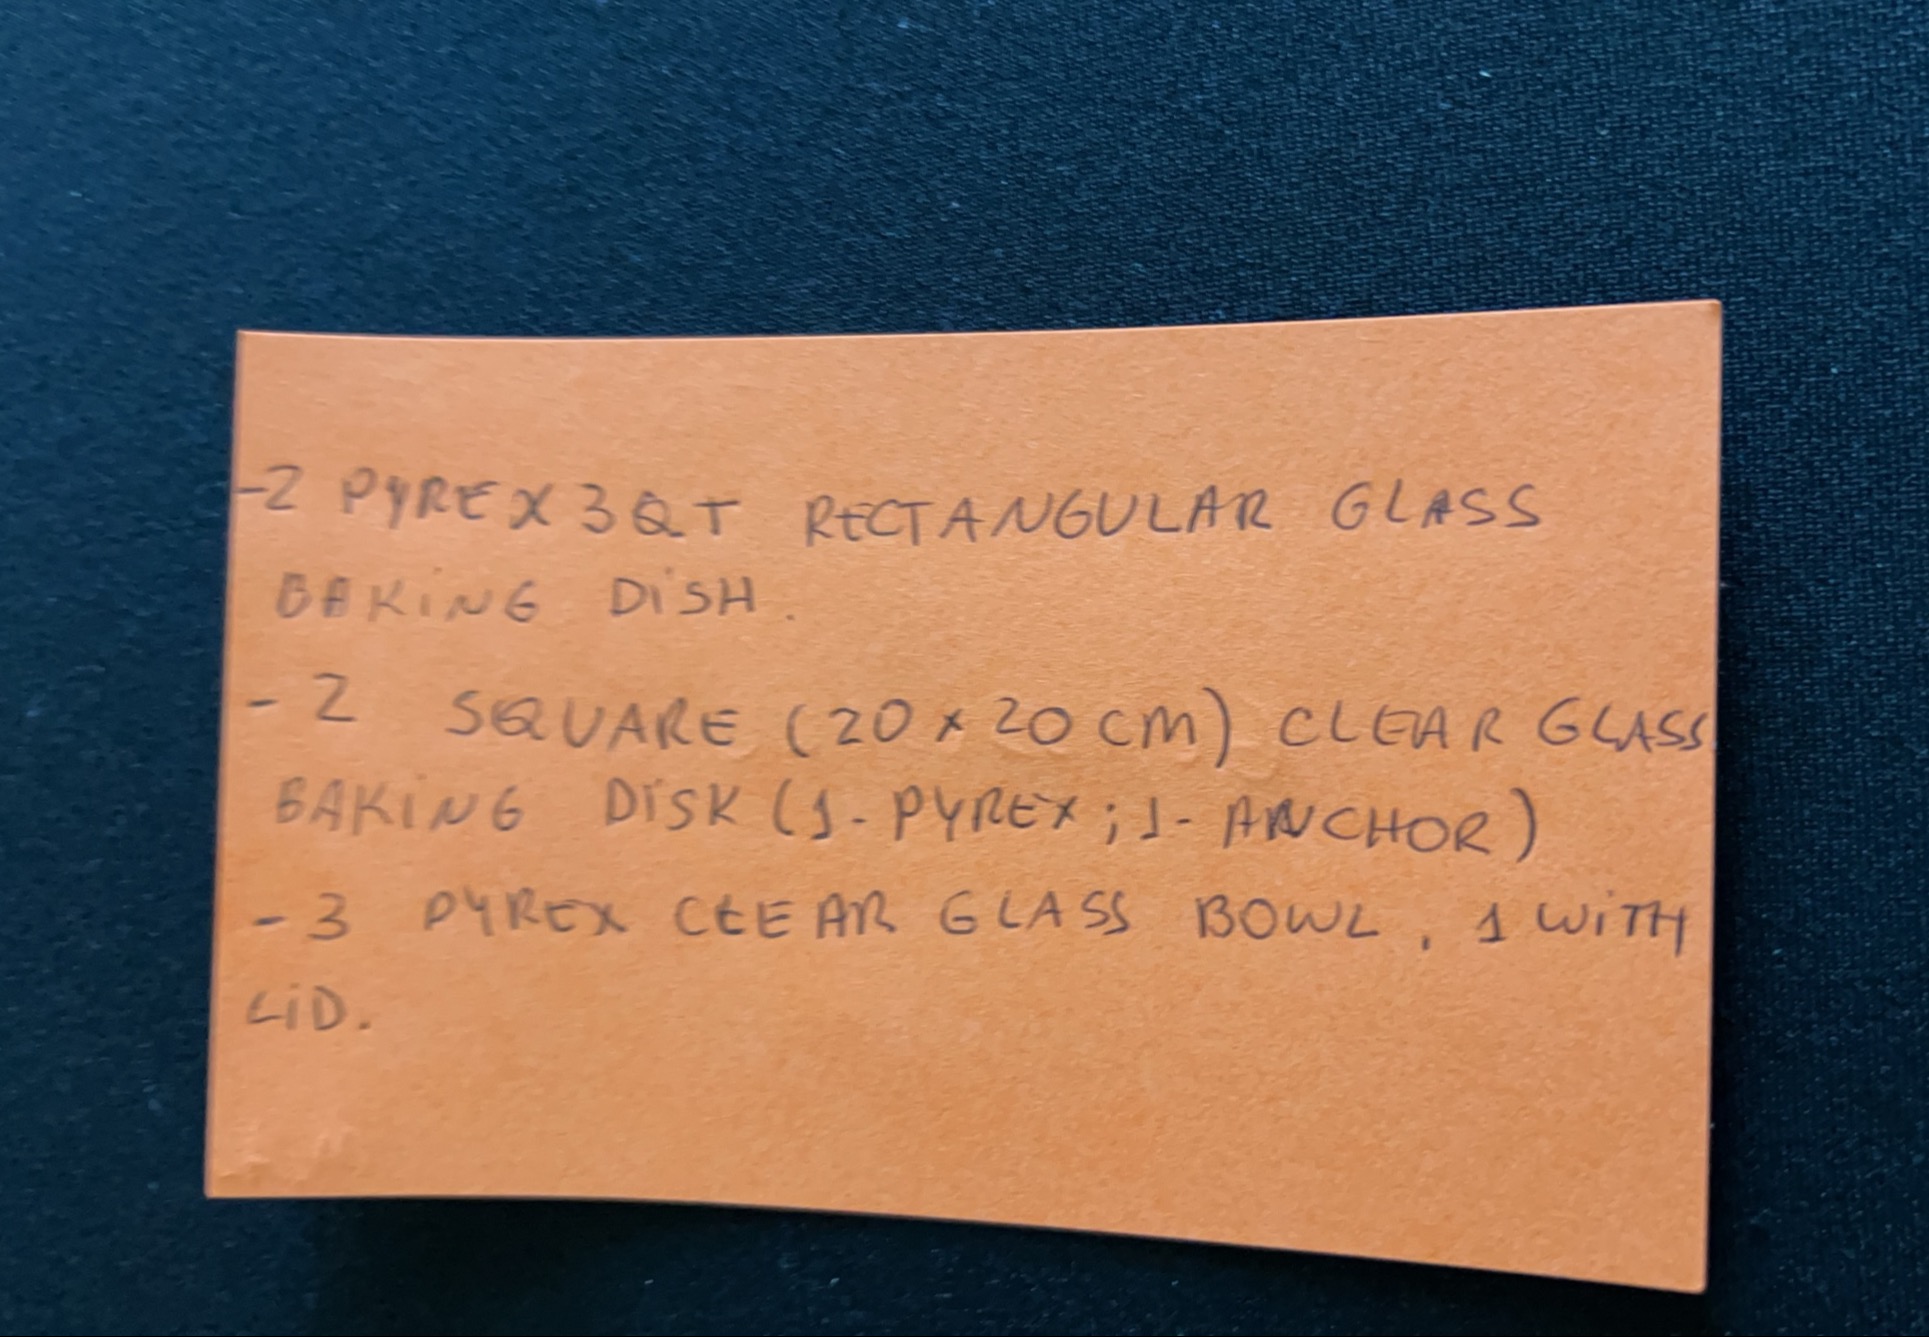 -2 PYREX 3QT RECTANGULAR GLASS
BAKING DISH.
- 2 SQUARE (20 x 20 CM) CLEAR GLASS
BAKING DISK (1- PYREX; 1- ANCHOR)
- 3 PYREX CLEAR GLASS BOWL, 1 WITH
LID.